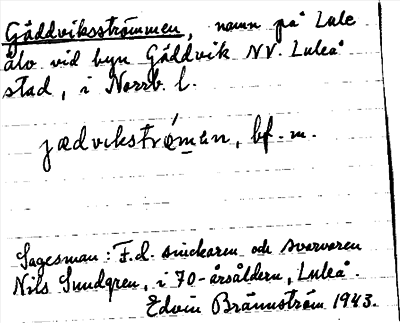 Gäddviksströmmen, namn på Lule
älv vid byn Gäddvik NV. Luleå
stad, i Norrb. l.
jædvikstrǿmɘn, bf. m.
Sagesman: F.d. snickaren och svarvaren
Nils Sundgren, i 70-årsåldern, Luleå.
Edvin Brännström 1943.